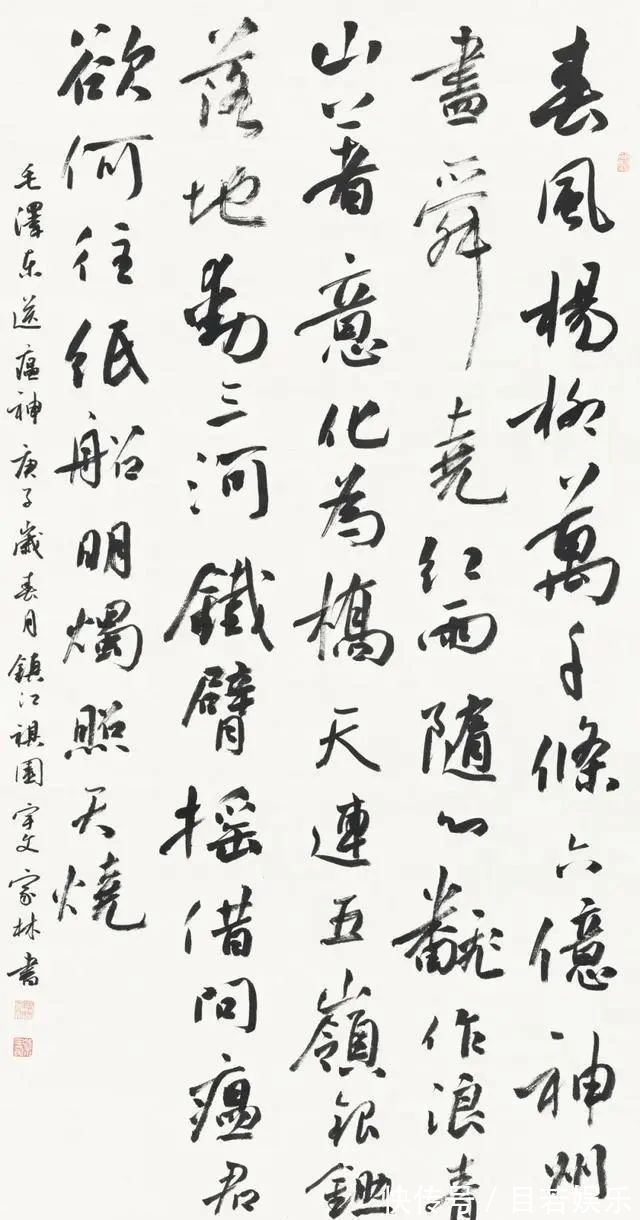 春風楊柳萬千條六億神州
盡舜堯紅雨隨心飜作浪青
山著意化為橋天連五嶺銀鋤
落地動三河鐵臂搖借問瘟君
欲何往紙船明燭照天燒
毛澤东送瘟神庚子歲春月鎮江祺園宇文家林書
快传号/目若娱乐